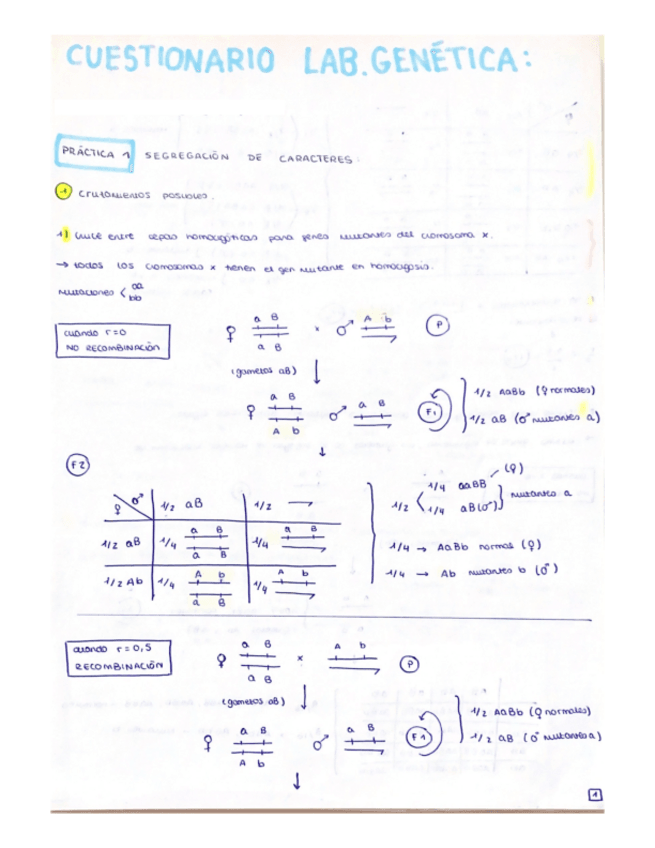 CUESTIONARIO LAB. GENÉTICA:
PRÁCTICA 1 SEGREGACIÓN DE CARACTERES.
1 Cruzamientos posibles
1) Cruce entre cepas homocigóticas para genes mutantes del cromosoma x.
→ todos los cromosomas x tienen el gen mutante en homocigosis.
Mutaciones < aa
bb
cuando r=0
NO RECOMBINACIÓN
♀ a B
a B
x ♂ A b
P
(gametos aB)
♀ a B
A b
♂ a B
F1
1/2 AaBb (♀ normales)
1/2 aB (♂ mutantes a)
F2
♀ ♂ 1/2 aB 1/2
1/2 aB 1/4 a B
a B
1/4 a B
1/2 Ab 1/4 A b
a B
1/4 A b
1/2 < 1/4 aaBB (♀)
1/4 aB (♂)
mutantes a
1/4 → AaBb normas (♀)
1/4 → Ab mutantes b (♂)
cuando r=0,5
RECOMBINACIÓN
♀ a B
a B
x A b
P
(gametos aB)
♀ a B
A b
♂ a B
F1
1/2 AaBb (♀ normales)
1/2 aB (♂ mutantes a)
1